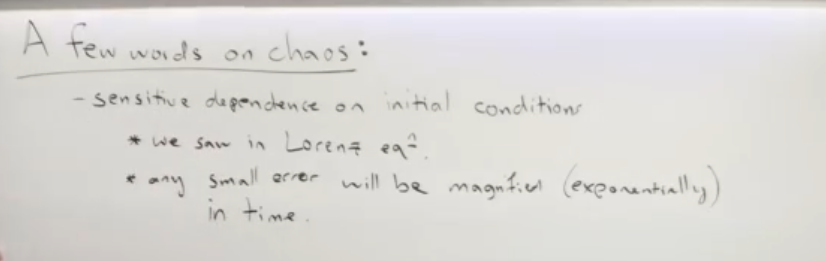 A few words on chaos:
- sensitive dependence on initial conditions
* we saw in Lorenz eqⁿ.
* any small error will be magnified (exponentially)
in time.